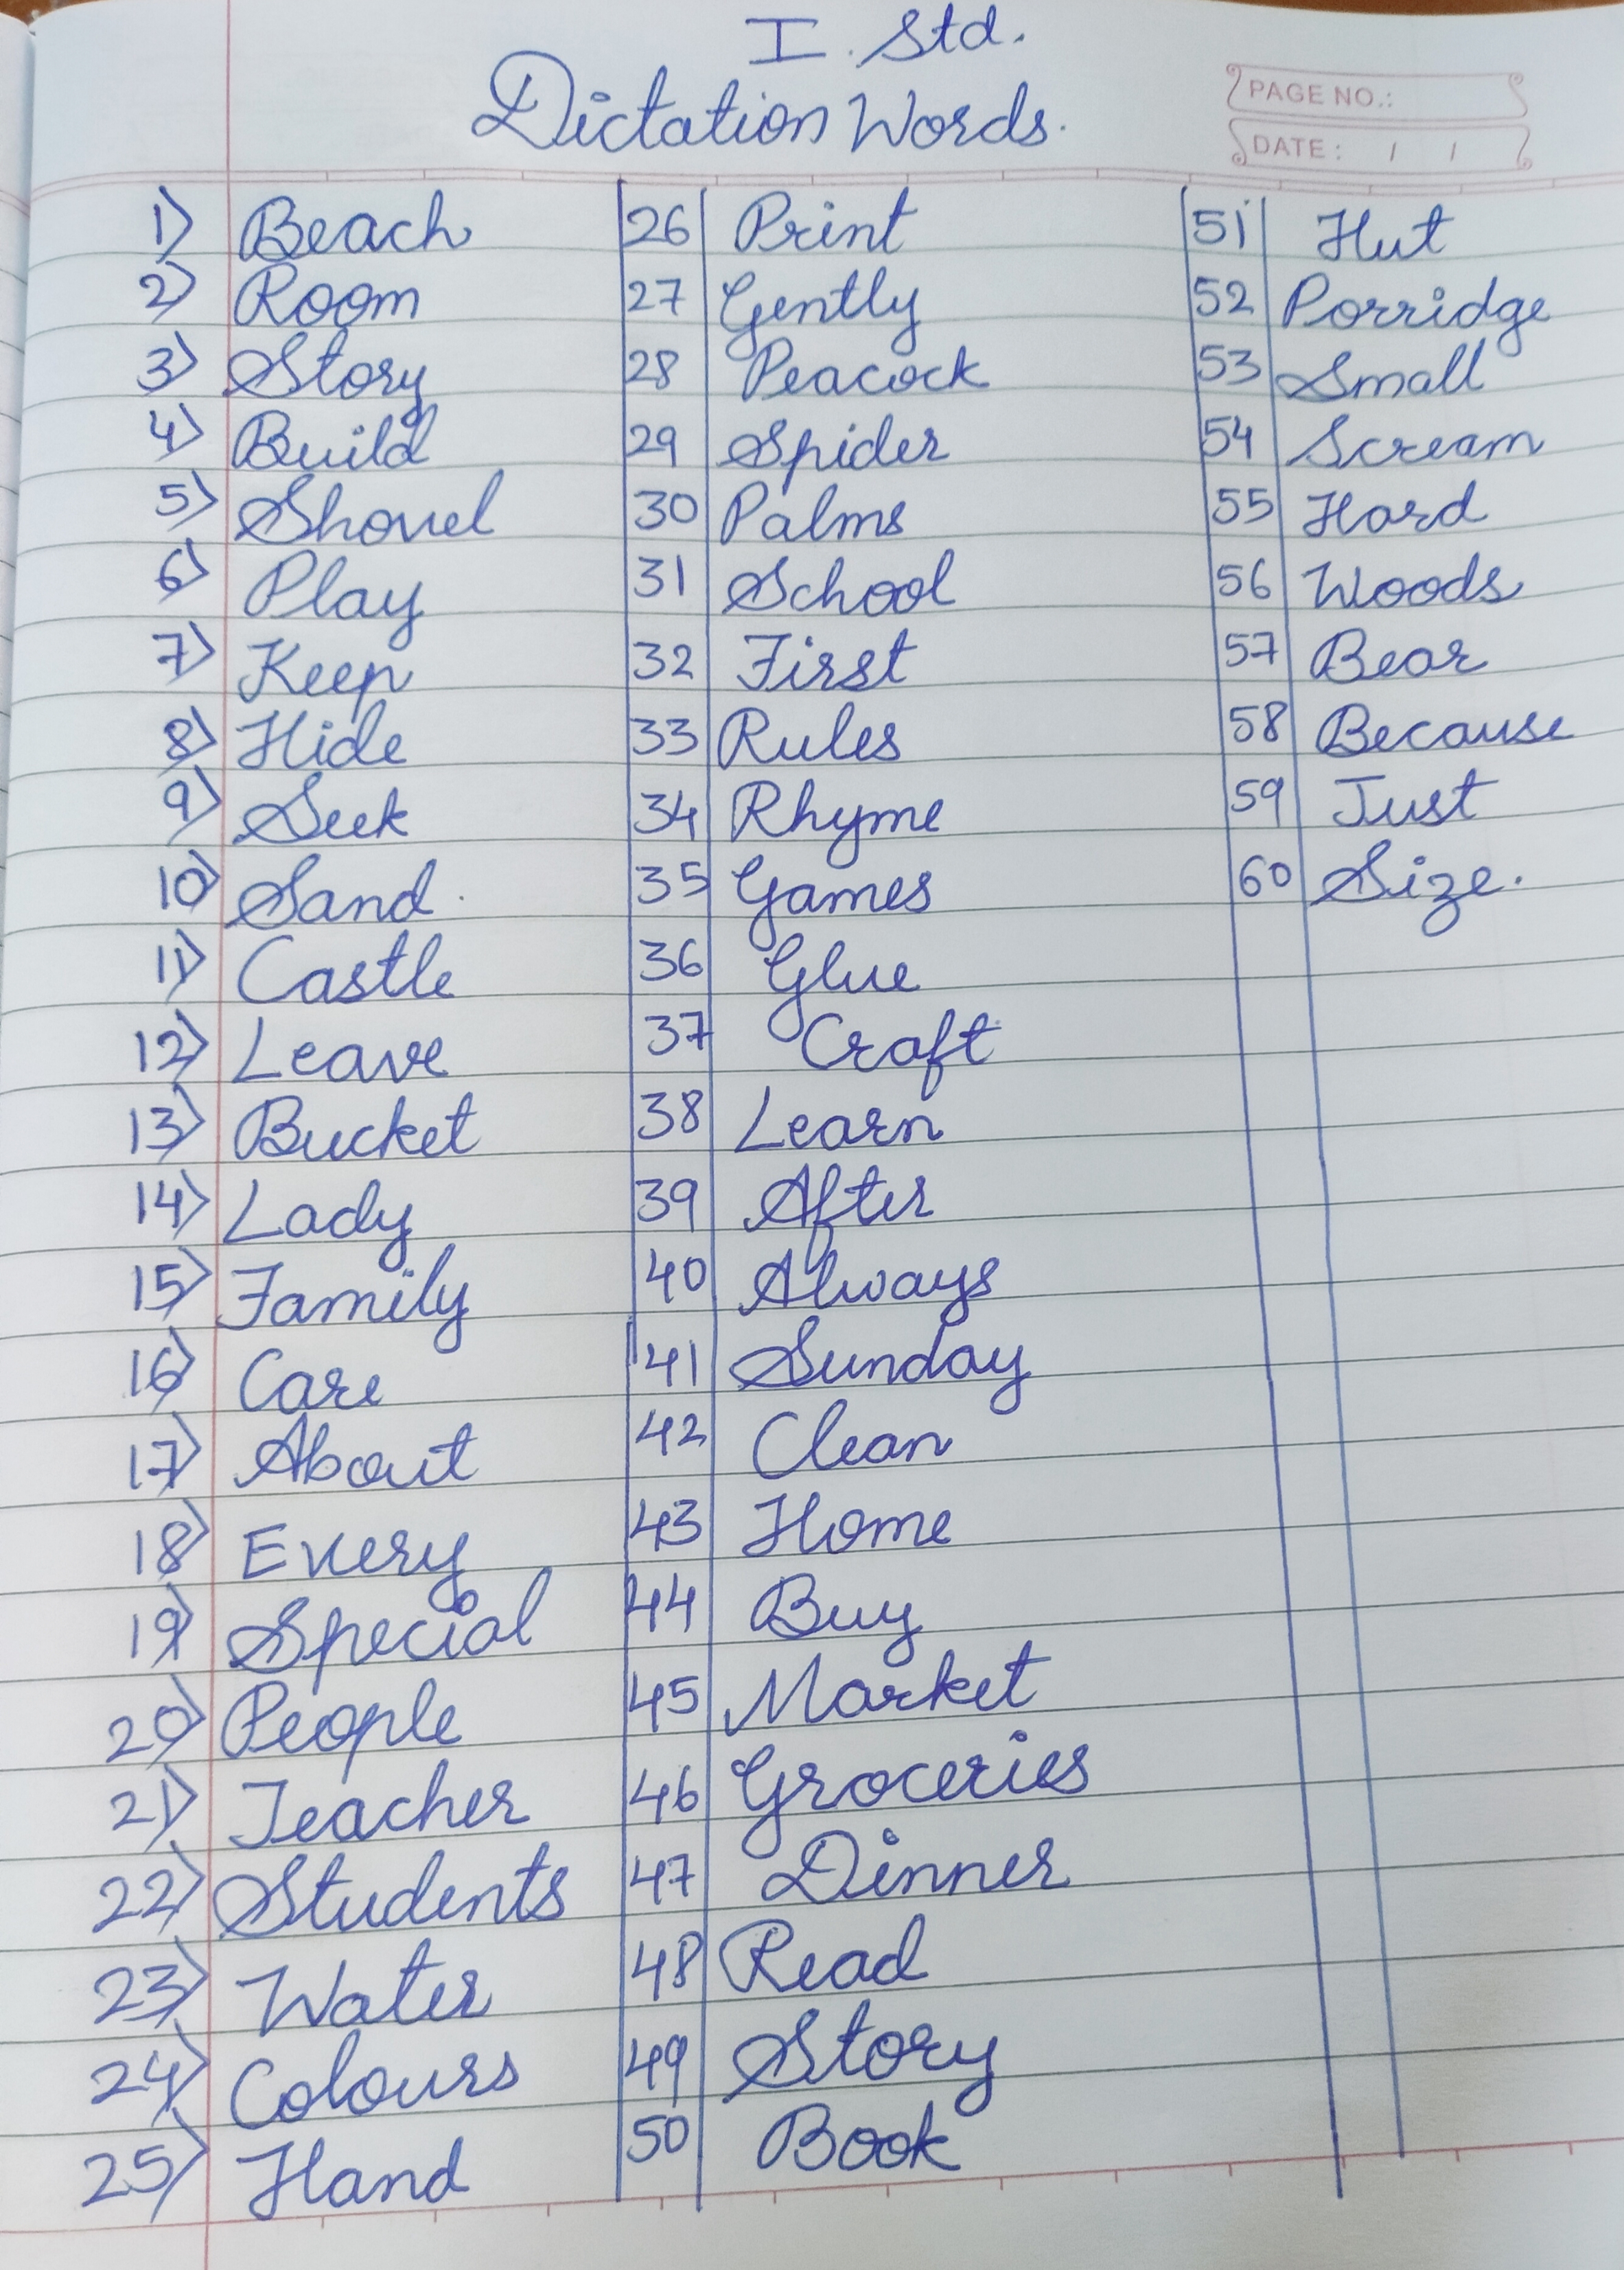 I. Std.
Dictation Words.
PAGE NO.:
DATE: / /
1) Beach
2) Room
3) Story
4) Build
5) Shovel
6) Play
7) Keep
8) Hide
9) Seek
10) Sand
11) Castle
12) Leave
13) Bucket
14) Lady
15) Family
16) Care
17) About
18) Every
19) Special
20) People
21) Teacher
22) Students
23) Water
24) Colours
25) Hand
26 Print
27 Gently
28 Peacock
29 Spider
30 Palms
31 School
32 First
33 Rules
34 Rhyme
35 Games
36 Glue
37 Craft
38 Learn
39 After
40 Always
41 Sunday
42 Clean
43 Home
44 Buy
45 Market
46 Groceries
47 Dinner
48 Read
49 Story
50 Book
51 Hut
52 Porridge
53 Small
54 Scream
55 Hard
56 Woods
57 Bear
58 Because
59 Just
60 Size.